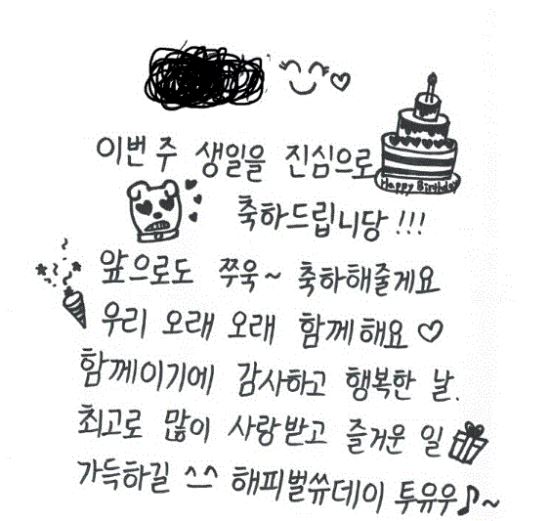 이번 주 생일을 진심으로
Happy Birthday
축하드립니당 !!!
앞으로도 쭈욱~ 축하해줄게요
우리 오래 오래 함께해요 ♡
함께이기에 감사하고 행복한 날.
최고로 많이 사랑받고 즐거운 일
가득하길 ^^ 해피벌쓔데이 투유우♪~